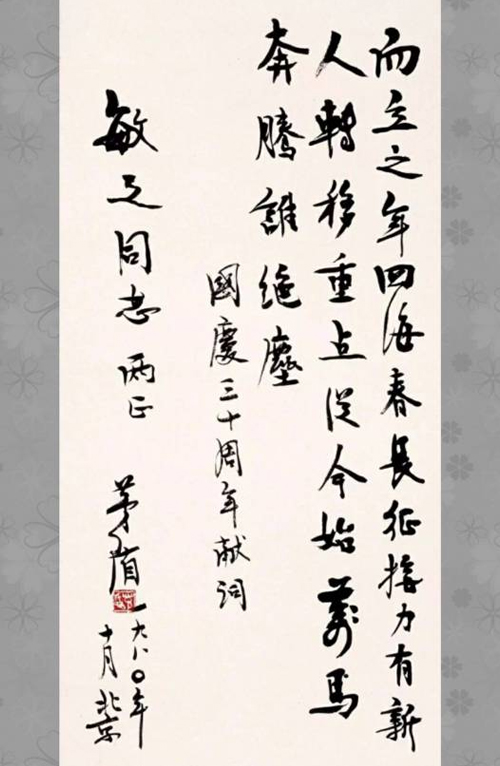 而立之年四海春長征接力有新
人轉移重点從今始萬馬
奔騰誰絕塵
國慶三十周年献詞
敏之同志 兩正
茅盾 一九八〇年
十月北京